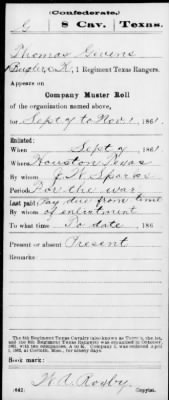 (Confederate.)
G 8 Cav. Texas.
Thomas Givens
Bugler, K, 1 Regiment Texas Rangers.
Appears on
Company Muster Roll
of the organization named above,
for Sept 7 to Nov 1, 1861.
Enlisted:
When Sept 7, 1861
Where Houston Texas
By whom J. W. Sparks
Period For the war
Last paid: Pay due from time
By whom of enlistment
To what time To date, 186
Present or absent Present
Remarks:
The 8th Regiment Texas Cavalry (also known as Terry's, the 1st,
and the 8th Regiment Texas Rangers) was organized in October,
1861, with ten companies, A to K. Company L was enlisted April
Book mark:
(642) W. A. Rosby Copyist.